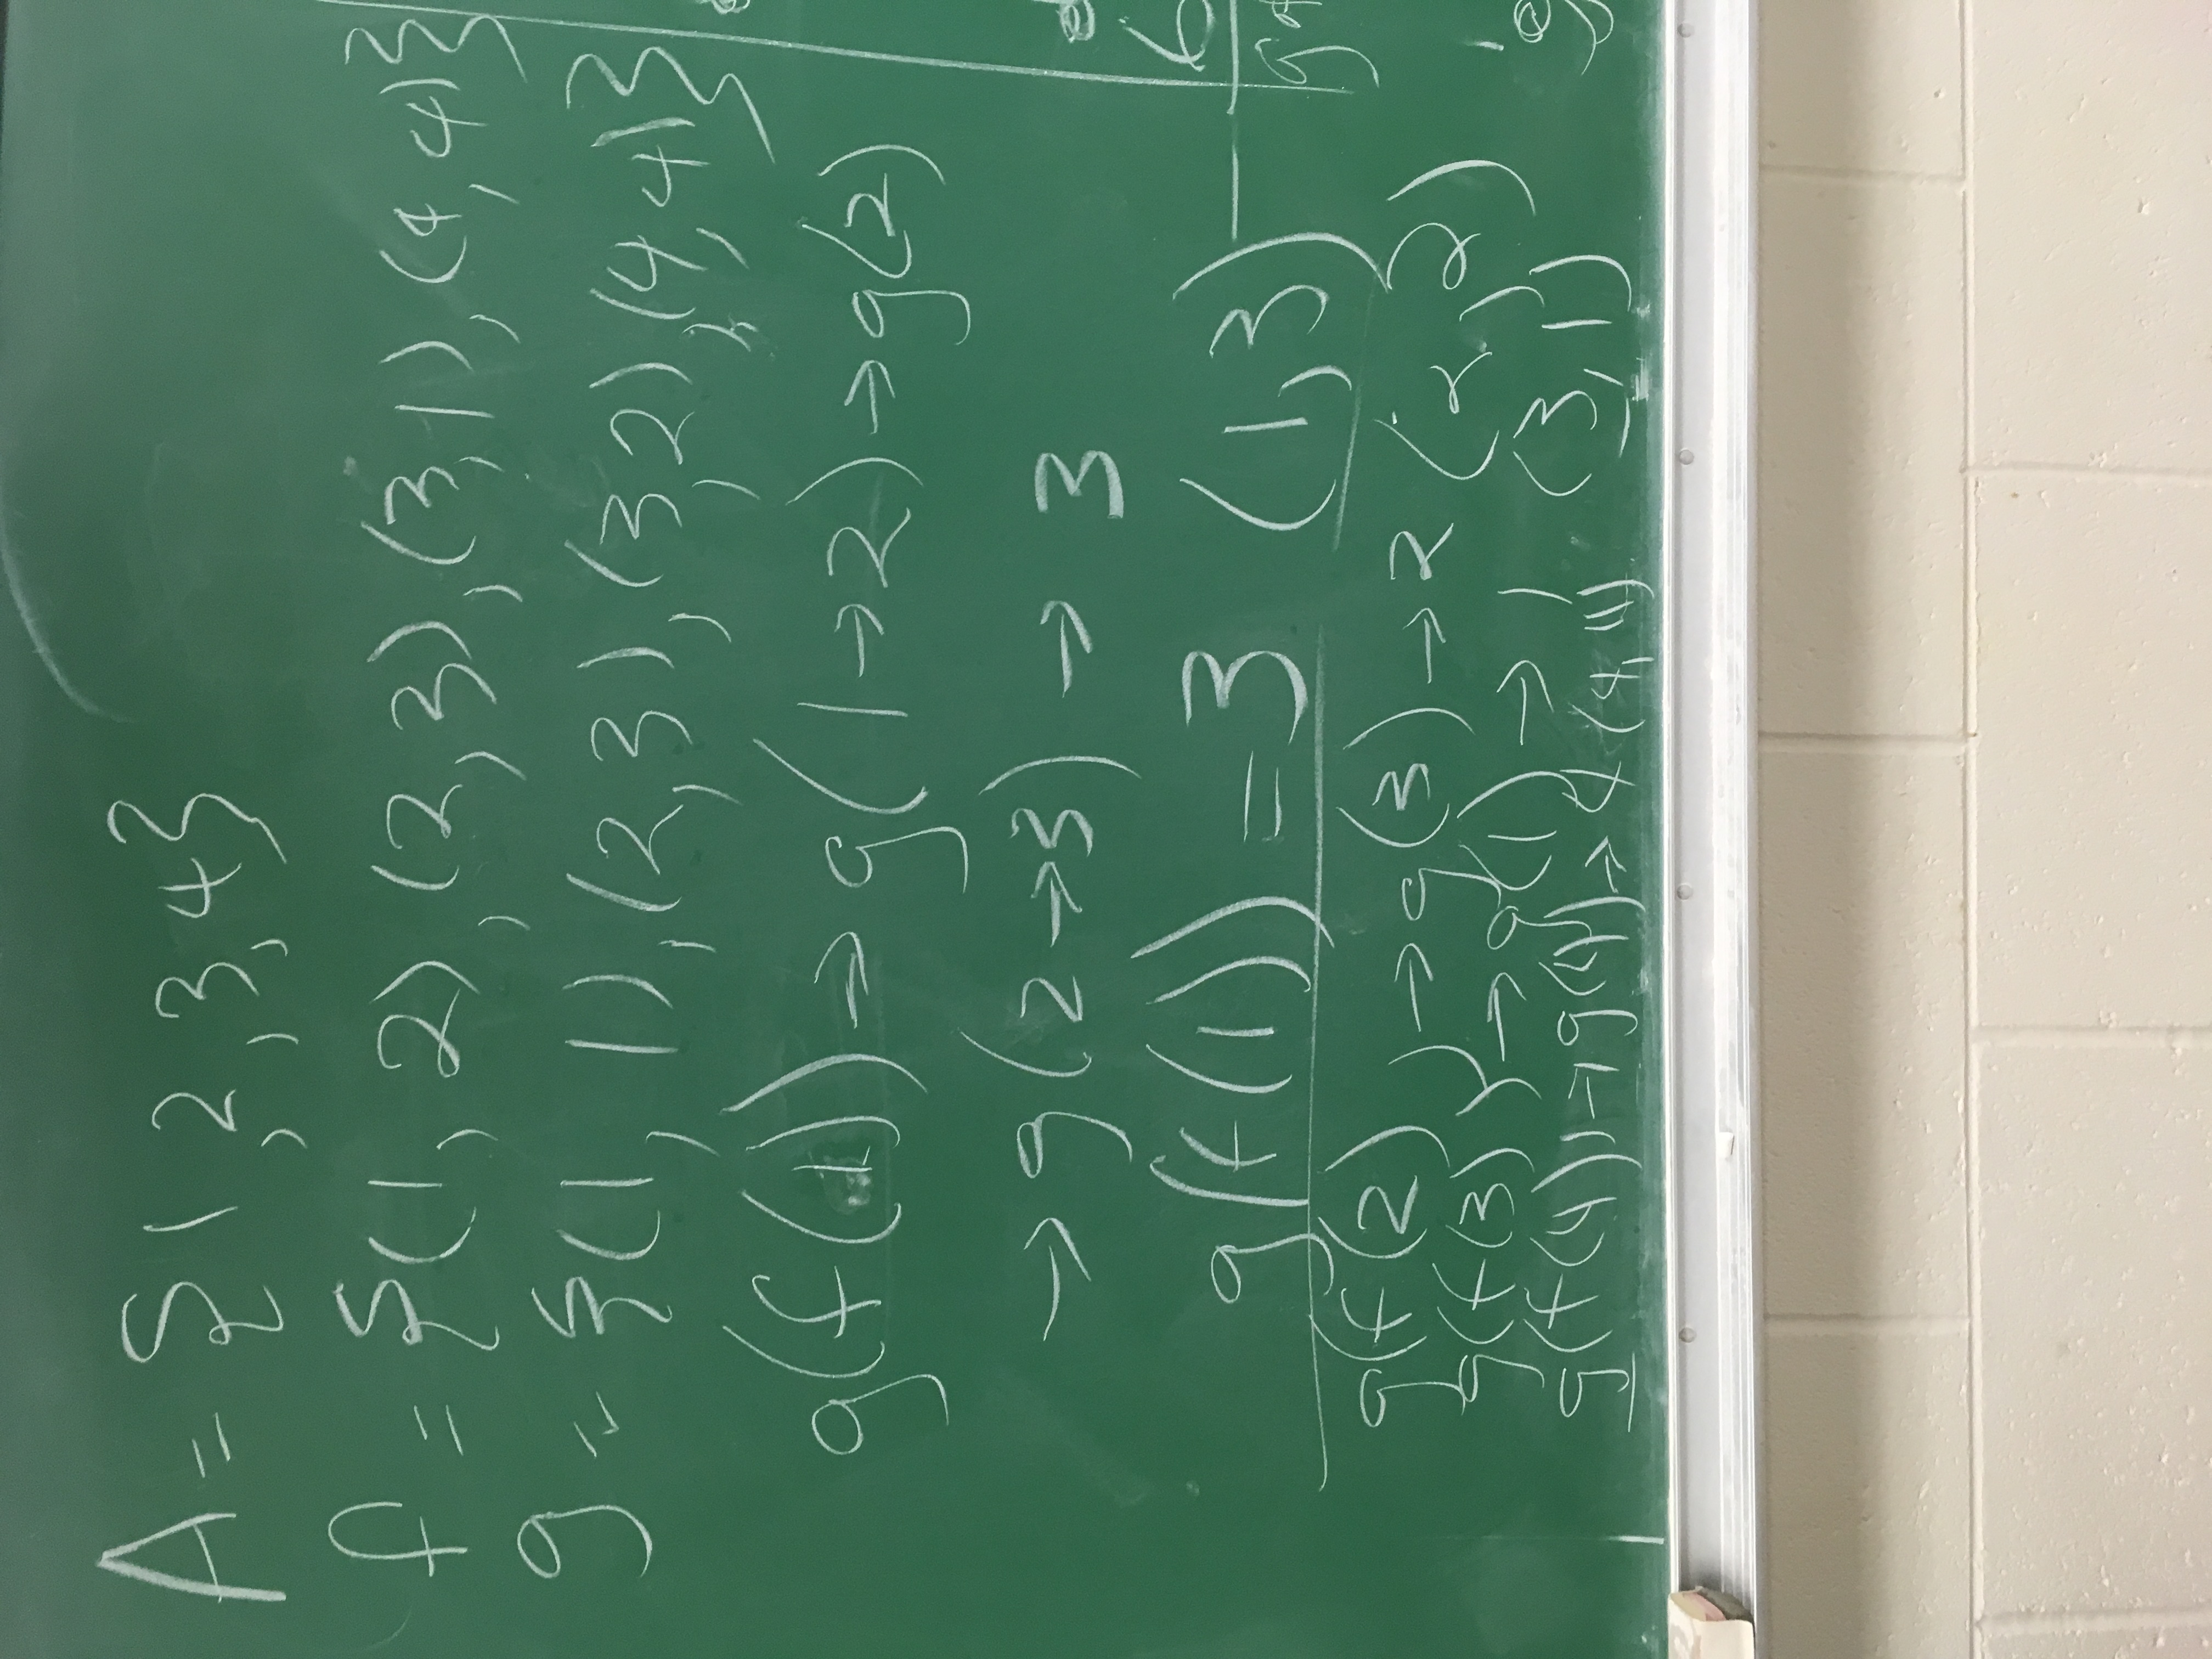 A = {1, 2, 3, 4}
f = {(1, 2), (2, 3), (3, 1), (4, 4)}
g = {(1, 1), (2, 3), (3, 2), (4, 4)}
g(f(1)) → g(1 → 2) → g(2)
→ g(2 → 3) → 3
g(f(1)) = 3 (1, 3)
g(f(2)) → g(3) → 2 (2, 2)
g(f(3)) → g(1) → 1 (3, 1)
g(f(4)) → g(4) → 4 (4, 4)